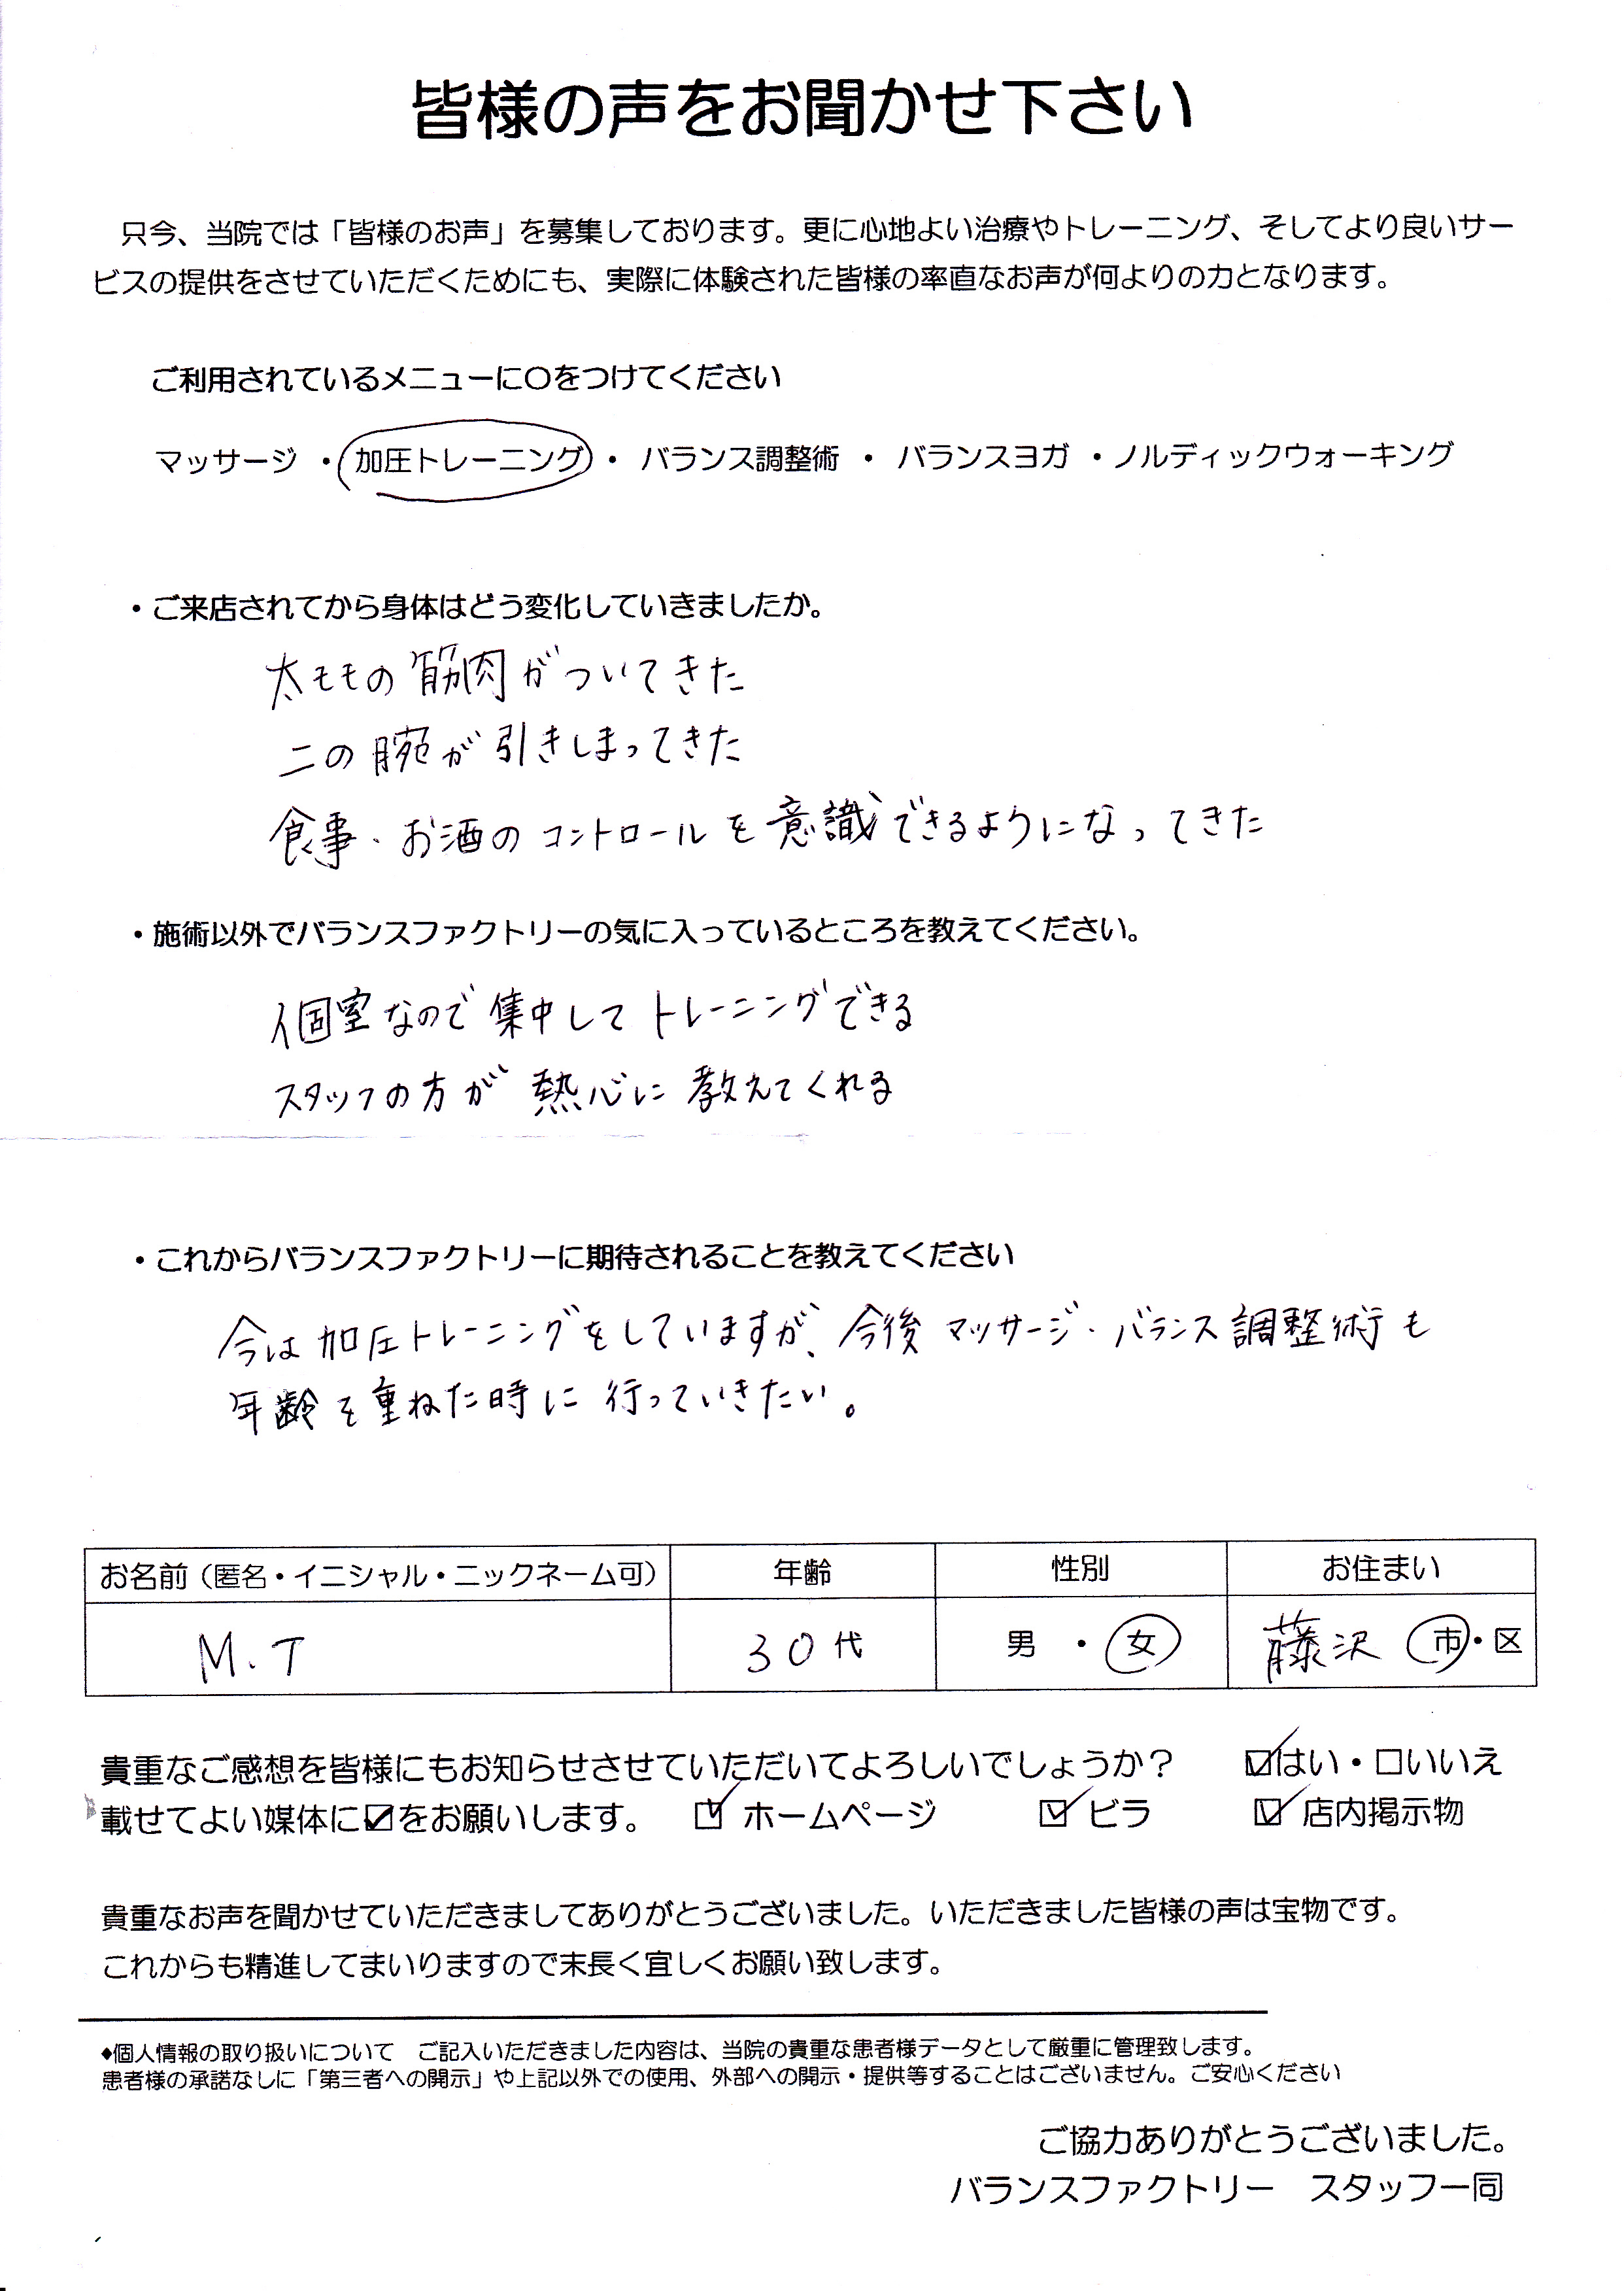 皆様の声をお聞かせ下さい
只今、当院では「皆様のお声」を募集しております。更に心地よい治療やトレーニング、そしてより良いサー
ビスの提供をさせていただくためにも、実際に体験された皆様の率直なお声が何よりの力となります。
ご利用されているメニューに○をつけてください
マッサージ ・ 加圧トレーニング ・ バランス調整術 ・ バランスヨガ ・ノルディックウォーキング
・ご来店されてから身体はどう変化していきましたか。
太ももの筋肉がついてきた
二の腕が引きしまってきた
食事・お酒のコントロールを意識できるようになってきた
・施術以外でバランスファクトリーの気に入っているところを教えてください。
個室なので集中してトレーニングできる
スタッフの方が熱心に教えてくれる
・これからバランスファクトリーに期待されることを教えてください
今は加圧トレーニングをしていますが、今後マッサージ・バランス調整術も
年齢を重ねた時に行っていきたい。
お名前（匿名・イニシャル・ニックネーム可） 年齢 性別 お住まい
M.T 30代 男 ・ 女 藤沢 市・区
貴重なご感想を皆様にもお知らせさせていただいてよろしいでしょうか？ ☑はい・□いいえ
載せてよい媒体に☑をお願いします。 ☑ ホームページ ☑ ビラ ☑ 店内掲示物
貴重なお声を聞かせていただきましてありがとうございました。いただきました皆様の声は宝物です。
これからも精進してまいりますので末長く宜しくお願い致します。
◆個人情報の取り扱いについて ご記入いただきました内容は、当院の貴重な患者様データとして厳重に管理致します。
患者様の承諾なしに「第三者への開示」や上記以外での使用、外部への開示・提供等することはございません。ご安心ください
ご協力ありがとうございました。
バランスファクトリー スタッフ一同